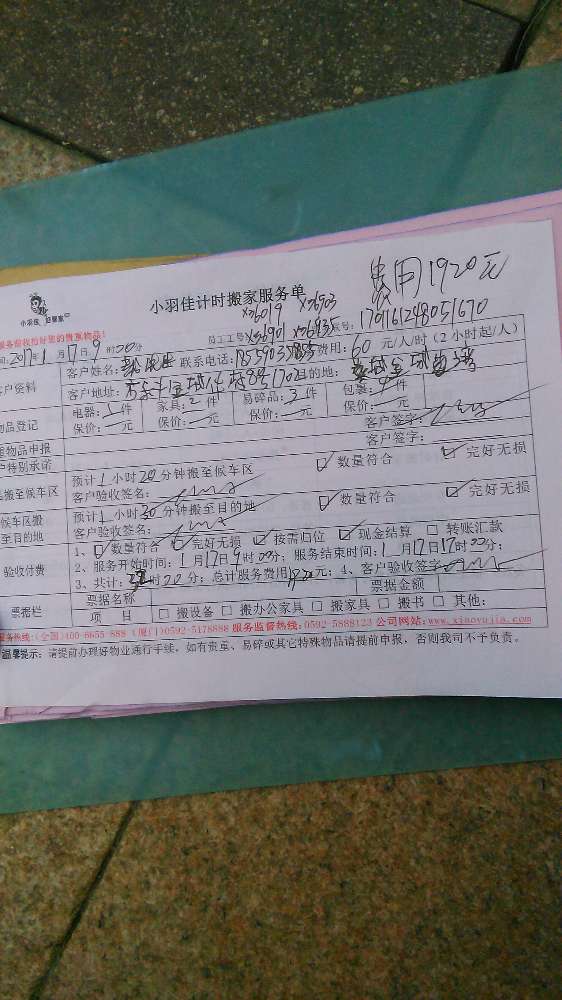 费用1920元
小羽佳计时搬家服务单
x36019 x36903
小羽佳
服务前收拾好里的贵重物品!
员工工号 x36901 x36935 170116124805167 0
间:2017年1月17日9时00分
客户姓名: 联系电话: 费用:60元/人/时(2小时起/人)
客户资料
客户地址: 9号1702 目的地:
物品登记
电器:5件 家具:2件 易碎品:3件 包装:件
保价:元 保价:元 保价:元 保价:元
物品申报 客户签字:
户特别承诺 客户签字:
搬至候车区
预计1小时20分钟搬至候车区 ☑数量符合 ☑完好无损
客户验收签名:
候车区搬至目的地
预计1小时20分钟搬至目的地 ☑数量符合 ☑完好无损
客户验收签名:
验收付费
1、☑数量符合 ☑完好无损 ☑按需归位 ☑现金结算 □转账汇款
2、服务开始时间:1月17日9时00分;服务结束时间:1月17日17时00分;
3、共计:时00分;总计服务费用1920元;4、客户验收签字
票据栏
票据名称 票据金额
项 目 □搬设备 □搬办公家具 □搬家具 □搬书 □其他:
服务热线:(全国)400-6655-888 (厦门)0592-5178888 服务监督热线:0592-5888123 公司网站:www.xiaoyujia.com
温馨提示:请提前办理好物业通行手续,如有贵重、易碎或其它特殊物品请提前申报,否则我司不予负责。